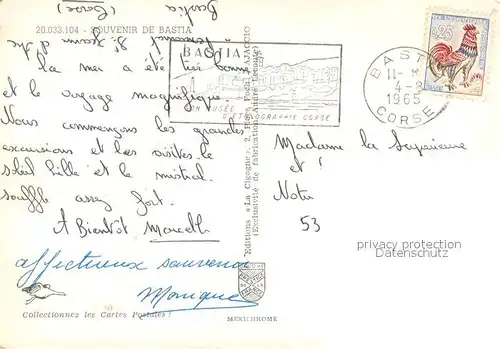 Bastia
(Corse)
20.033.104 - SOUVENIR DE BASTIA
La mer a été très bonne
et le voyage magnifique
Nous commençons les grandes
excursions et les visites. le
soleil brille et le mistral
souffle assez fort.
A Bientôt Marcelle
affectueux souvenir
Monique
Collectionnez les Cartes Postales !
BASTIA
SON MUSÉE
D'ETHNOGRAPHIE CORSE
Editions « La Cigogne », 2, Place Foch, AJACCIO
(Exclusivité de fabrication André Leconte)
MEXICHROME
0,25
BASTIA
4-8
1965
CORSE
Madame la Supérieure
et
Notre
53
privacy protection
Datenschutz